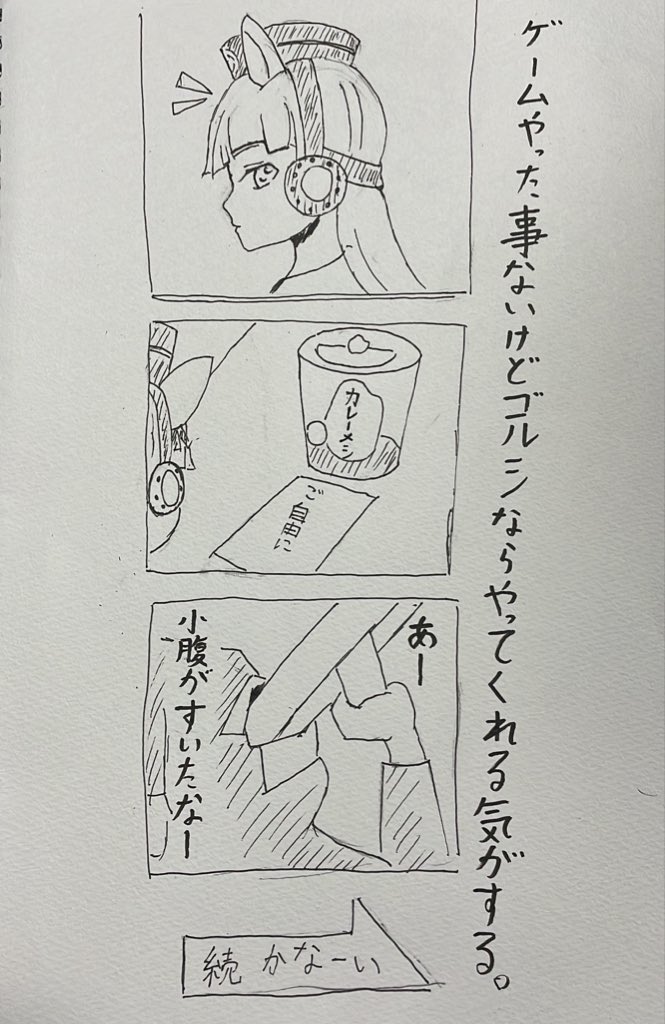 ゲームやった事ないけどゴルシならやってくれる気がする。
カレーメシ
ご自由に
あー
小腹がすいたなー
続かなーい